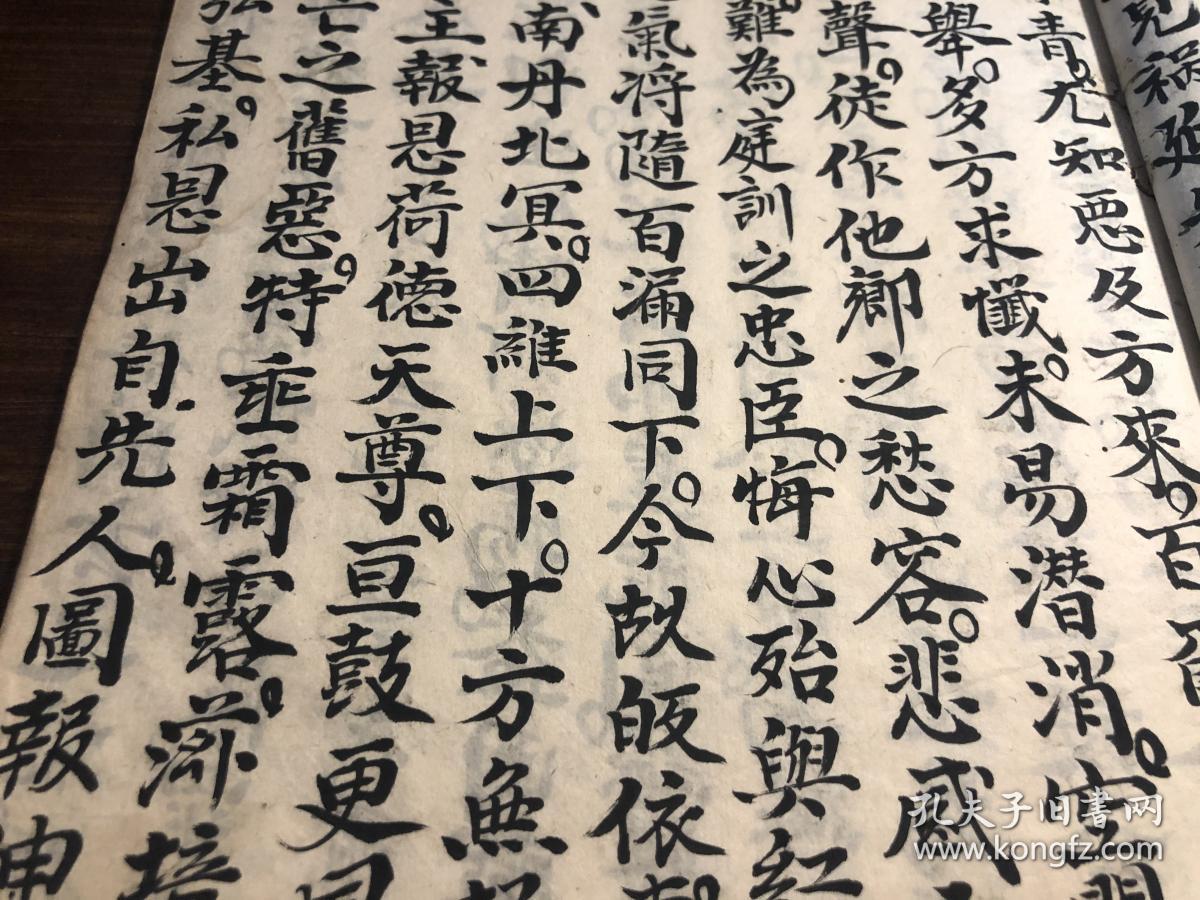 見禍延
青尤知悪及方來百
舉多方求懺未易潛消空
聲徒作他鄉之愁容悲感
難為庭訓之忠臣悔心殆與紅
氣将隨百漏同下今故皈依
南丹北冥四維上下十方無
主報恩荷德天尊亘鼓更
亡之舊惡特垂霜露莎培
基私恩出自先人圖報
孔夫子旧书网
www.kongfz.com